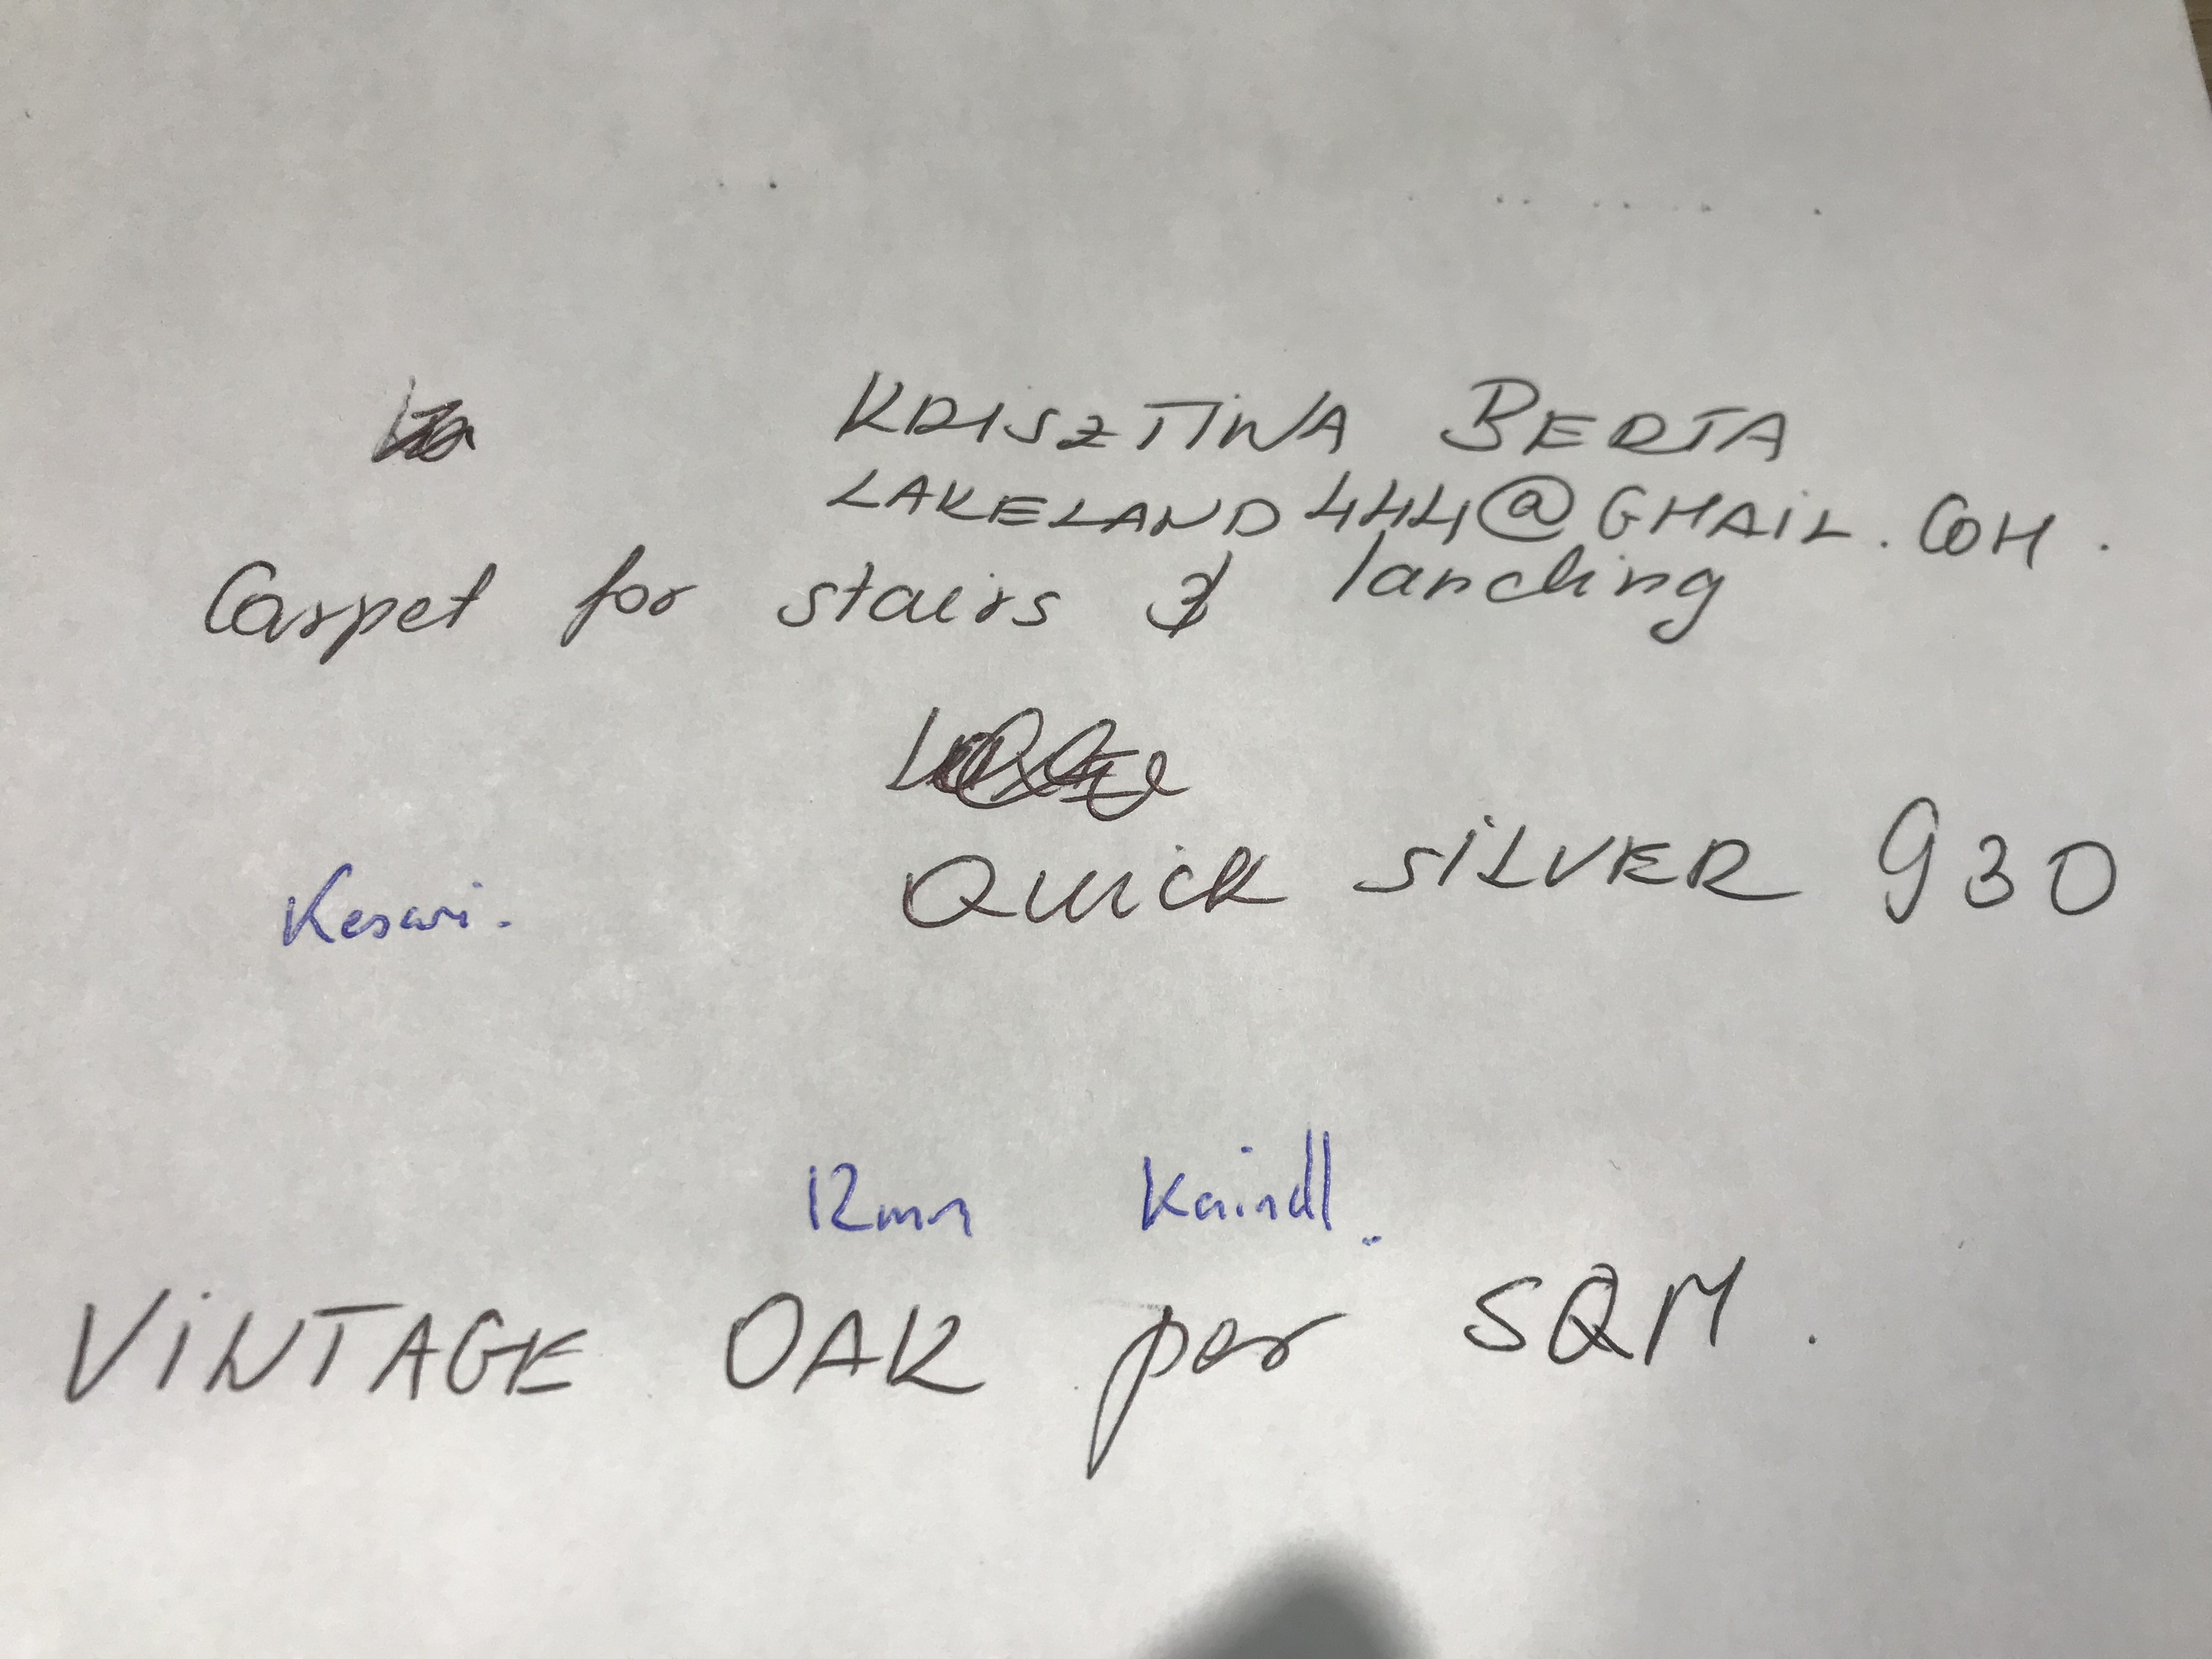 KRISZTINA BERTA
LAKELAND444@GMAIL.COM.
Carpet for stairs & landing
QUICK SILVER 930
12mm Kaindl.
VINTAGE OAK per SQM.